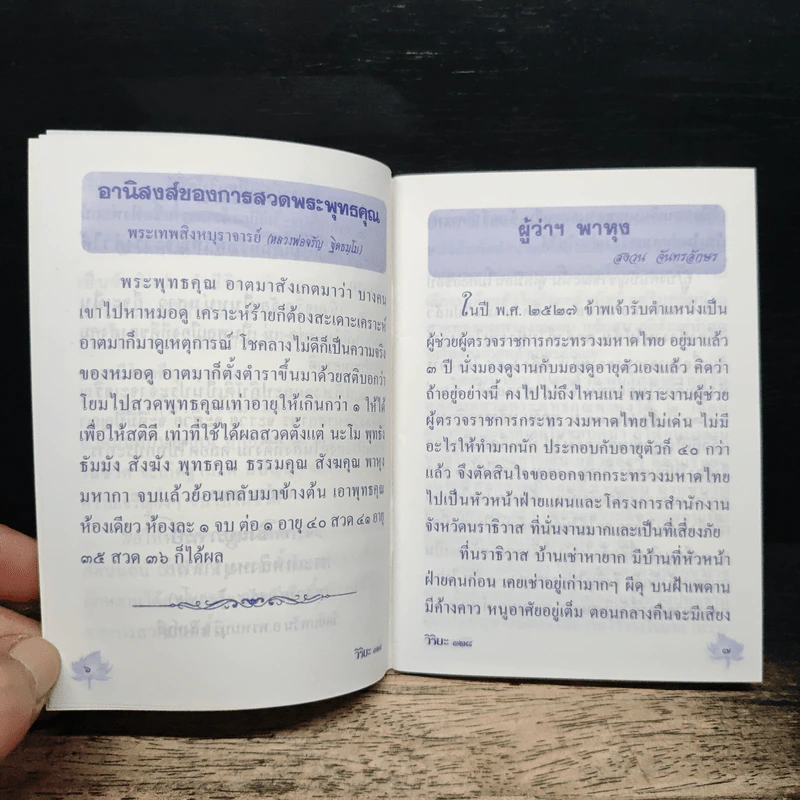 อานิสงส์ของการสวดพระพุทธคุณ
พระเทพสิงหบุราจารย์ (หลวงพ่อจรัญ ฐิตธมฺโม)
พระพุทธคุณ อาตมาสังเกตมาว่า บางคน
เขาไปหาหมอดู เคราะห์ร้ายก็ต้องสะเดาะเคราะห์
อาตมาก็มาดูเหตุการณ์ โชคลางไม่ดีก็เป็นความจริง
ของหมอดู อาตมาก็ตั้งตำราขึ้นมาด้วยสติบอกว่า
โยมไปสวดพุทธคุณเท่าอายุให้เกินกว่า ๑ ให้ได้
เพื่อให้สติดี เท่าที่ใช้ได้ผลสวดตั้งแต่ นะโม พุทธัง
ธัมมัง สังฆัง พุทธคุณ ธรรมคุณ สังฆคุณ พาหุง
มหากา จบแล้วย้อนกลับมาข้างต้น เอาพุทธคุณ
ห้องเดียว ห้องละ ๑ จบ ต่อ ๑ อายุ ๔๐ สวด ๔๑ อายุ
๓๕ สวด ๓๖ ก็ได้ผล
๖
วิริยะ ๑๒๘
ผู้ว่าฯ พาหุง
สงวน จันทรอักษร
ในปี พ.ศ. ๒๕๒๗ ข้าพเจ้ารับตำแหน่งเป็น
ผู้ช่วยผู้ตรวจราชการกระทรวงมหาดไทย อยู่มาแล้ว
๓ ปี นั่งมองดูงานกับมองดูอายุตัวเองแล้ว คิดว่า
ถ้าอยู่อย่างนี้ คงไปไม่ถึงไหนแน่ เพราะงานผู้ช่วย
ผู้ตรวจราชการกระทรวงมหาดไทยไม่เด่น ไม่มี
อะไรให้ทำมากนัก ประกอบกับอายุตัวก็ ๔๐ กว่า
แล้ว จึงตัดสินใจขอออกจากกระทรวงมหาดไทย
ไปเป็นหัวหน้าฝ่ายแผนและโครงการสำนักงาน
จังหวัดนราธิวาส ที่นั่นงานมากและเป็นที่เสี่ยงภัย
ที่นราธิวาส บ้านเช่าหายาก มีบ้านที่หัวหน้า
ฝ่ายคนก่อน เคยเช่าอยู่เก่ามากๆ ผีดุ บนฝ้าเพดาน
มีค้างคาว หนูอาศัยอยู่เต็ม ตอนกลางคืนจะมีเสียง
วิริยะ ๑๒๘
๗